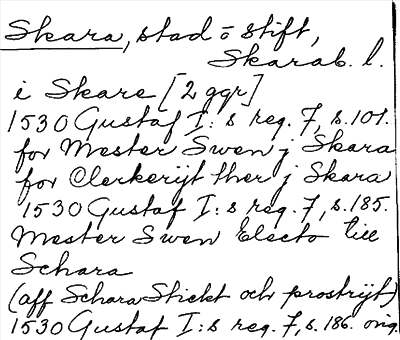 Skara, stad o stift,
Skarab. l.
i Skare [2 ggr]
1530 Gustaf I:s reg. 7, s. 101.
for Mester Swen j Skara
for Clerkerijt ther j Skara
1530 Gustaf I:s reg. 7, s. 185.
Mester Swen Electo till
Schara
(aff Schara Stickt och prostrijt)
1530 Gustaf I:s reg. 7, s. 186. orig.